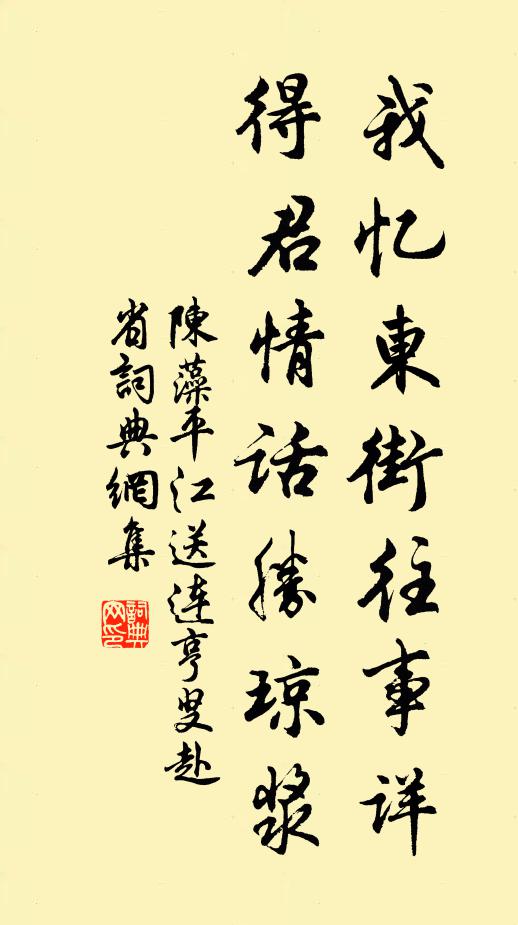 我忆東街往事详
得君情话勝琼浆
陳藻平江送连亨叟赴
省詞典網集
詞典网印